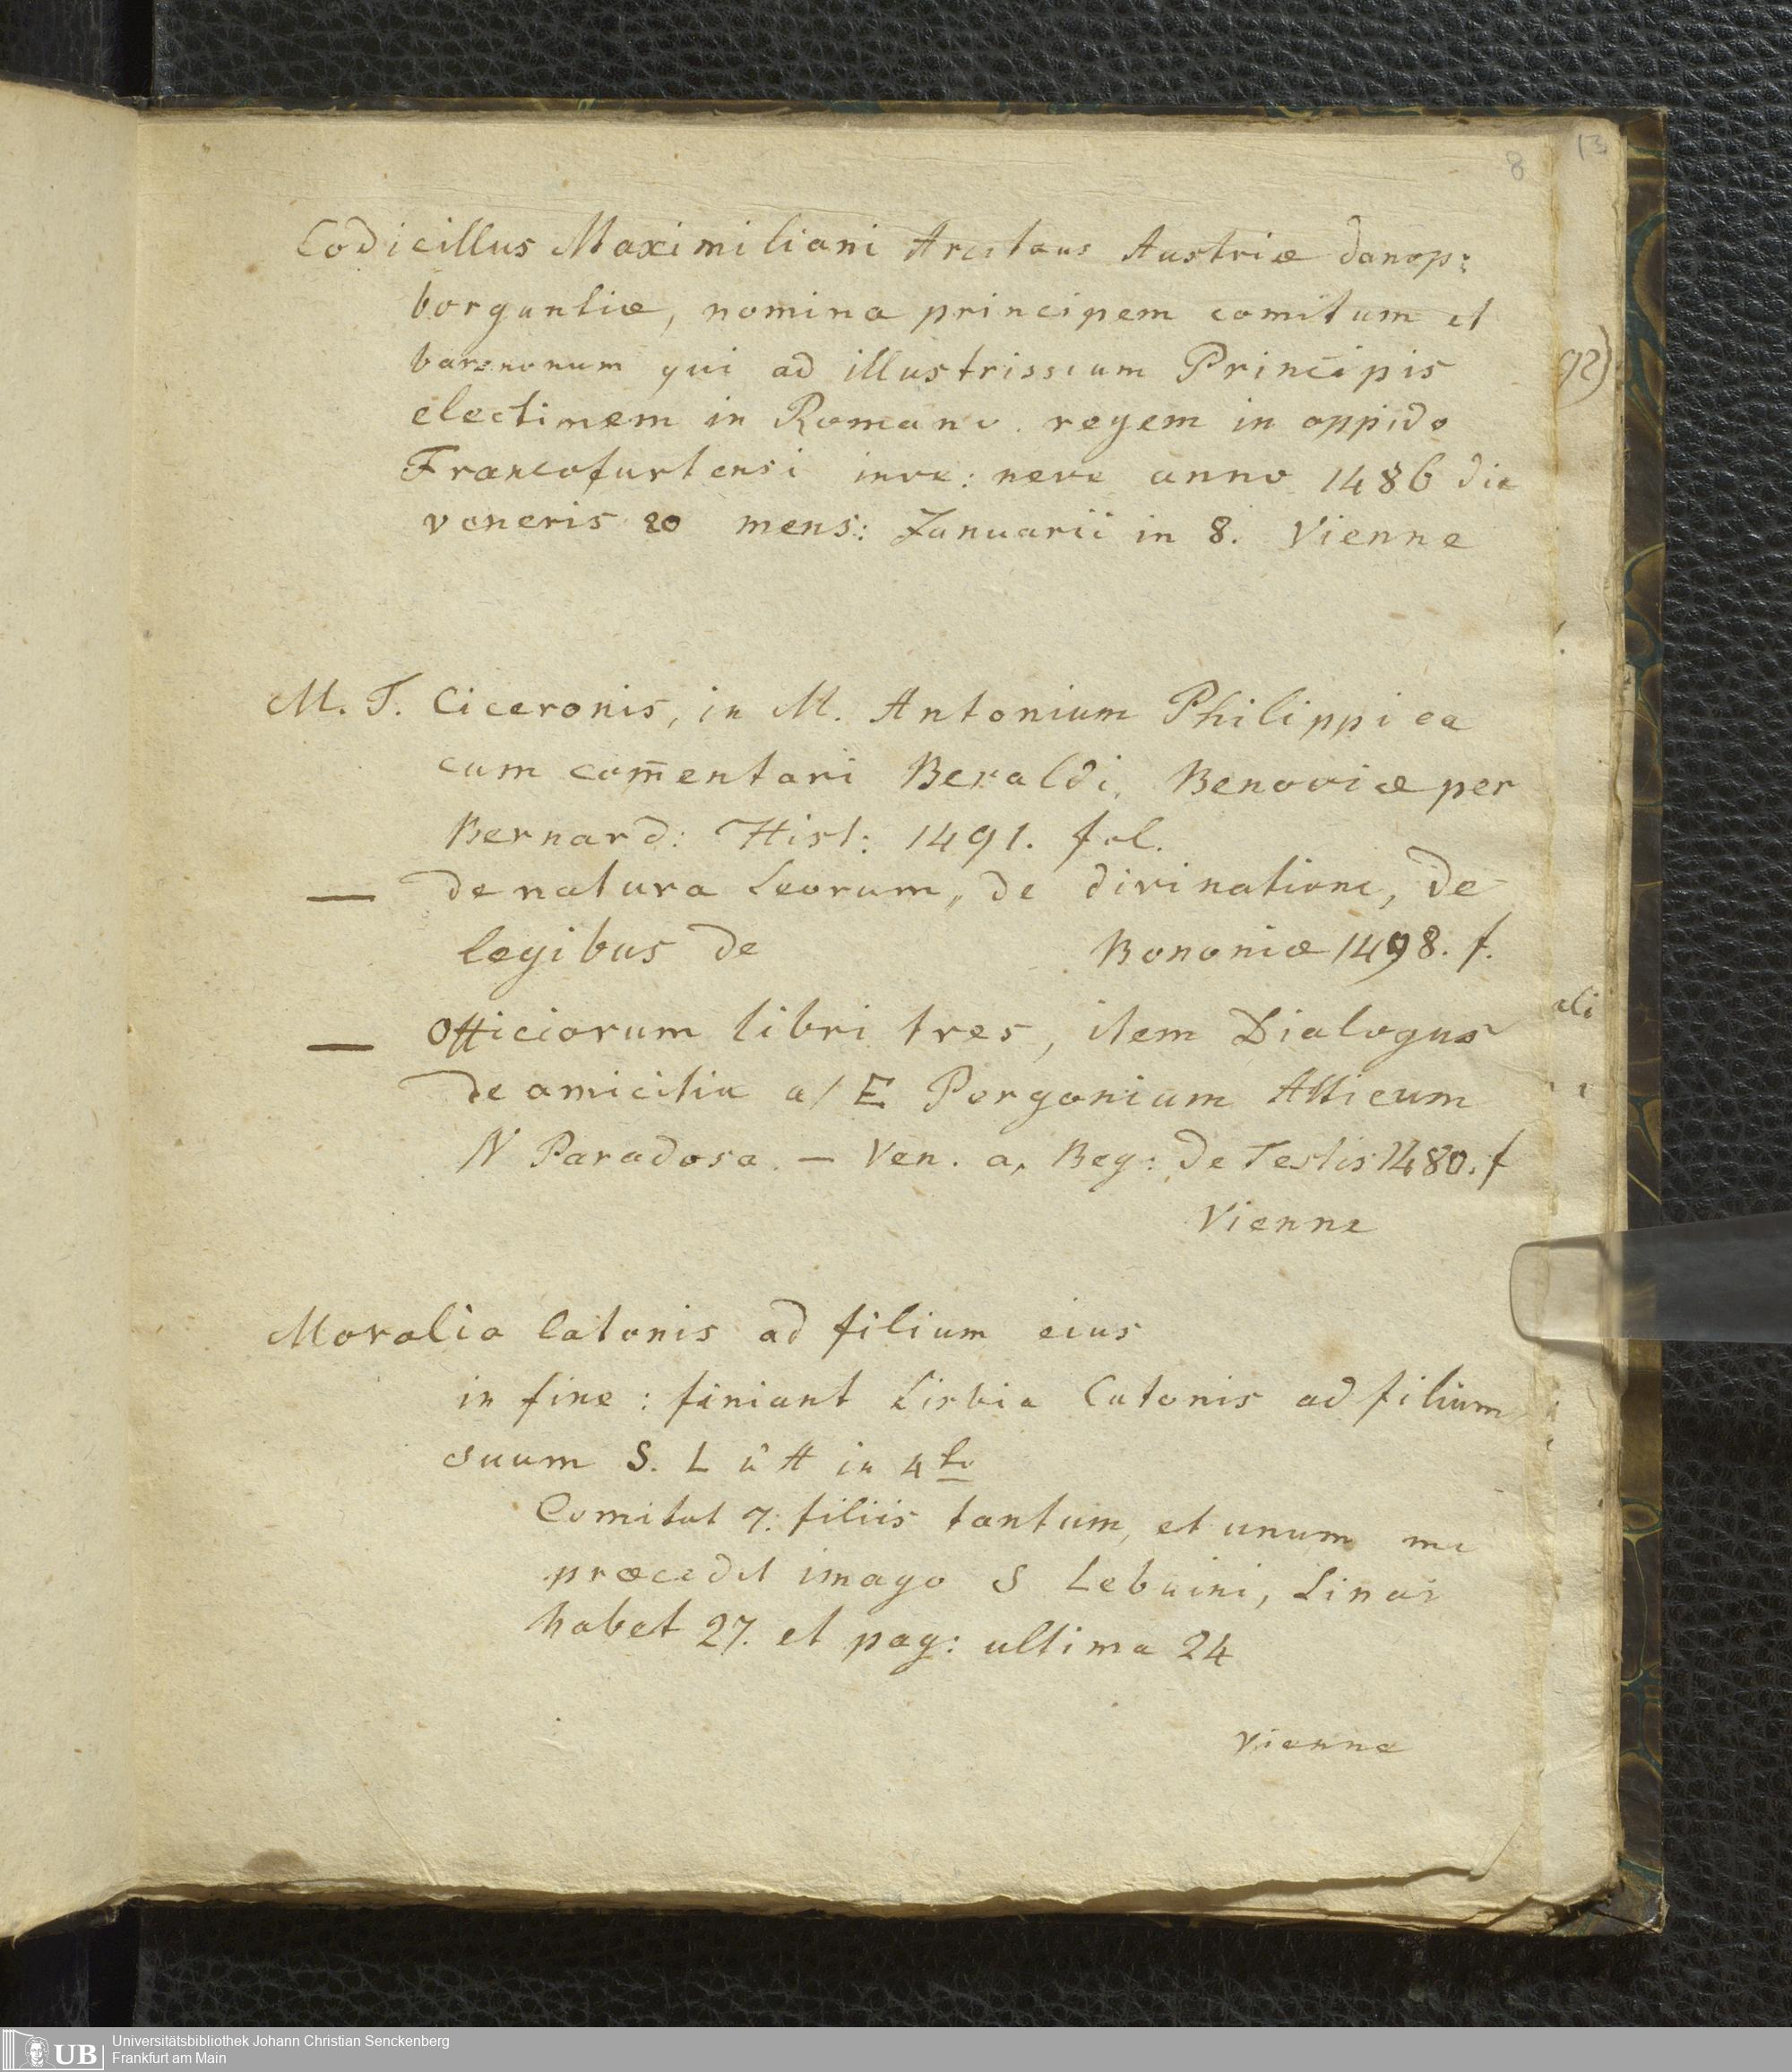 8
13
Codicillus Maximiliani Arcitaus Austriæ danop:
borguntiæ, nomina principem comitum et
baronum qui ad illustrissium Principis
92)
electinem in Romano regem in oppido
Francofurtensi inve: nere anno 1486 die
veneris 20 mens: Januarii in 8. Vienne
M. T. Ciceronis, in M. Antonium Philippi ca
cum com̄entari Beraldi, Benoviæ per
Bernard: Hist: 1491. fol.
— de natura Leorum, de divinatione, de
legibus de Bononiæ 1498. f.
— Officiorum libri tres, item Dialogus
ali
de amicitia a/ E Porgonium Atticum
N Paradosa. — Ven. a, Beg: de Testis 1480. f
Vienne
Moralia Catonis ad filium eius
in fine: finiant Lisbia Catonis ad filium
suum S. L in 4to
Comitat 7: filiis tantum, et unum me
præcedit imago S Lebuini, Linai
habet 27. et pag: ultima 24
Vienne
UB
Universitätsbibliothek Johann Christian Senckenberg
Frankfurt am Main